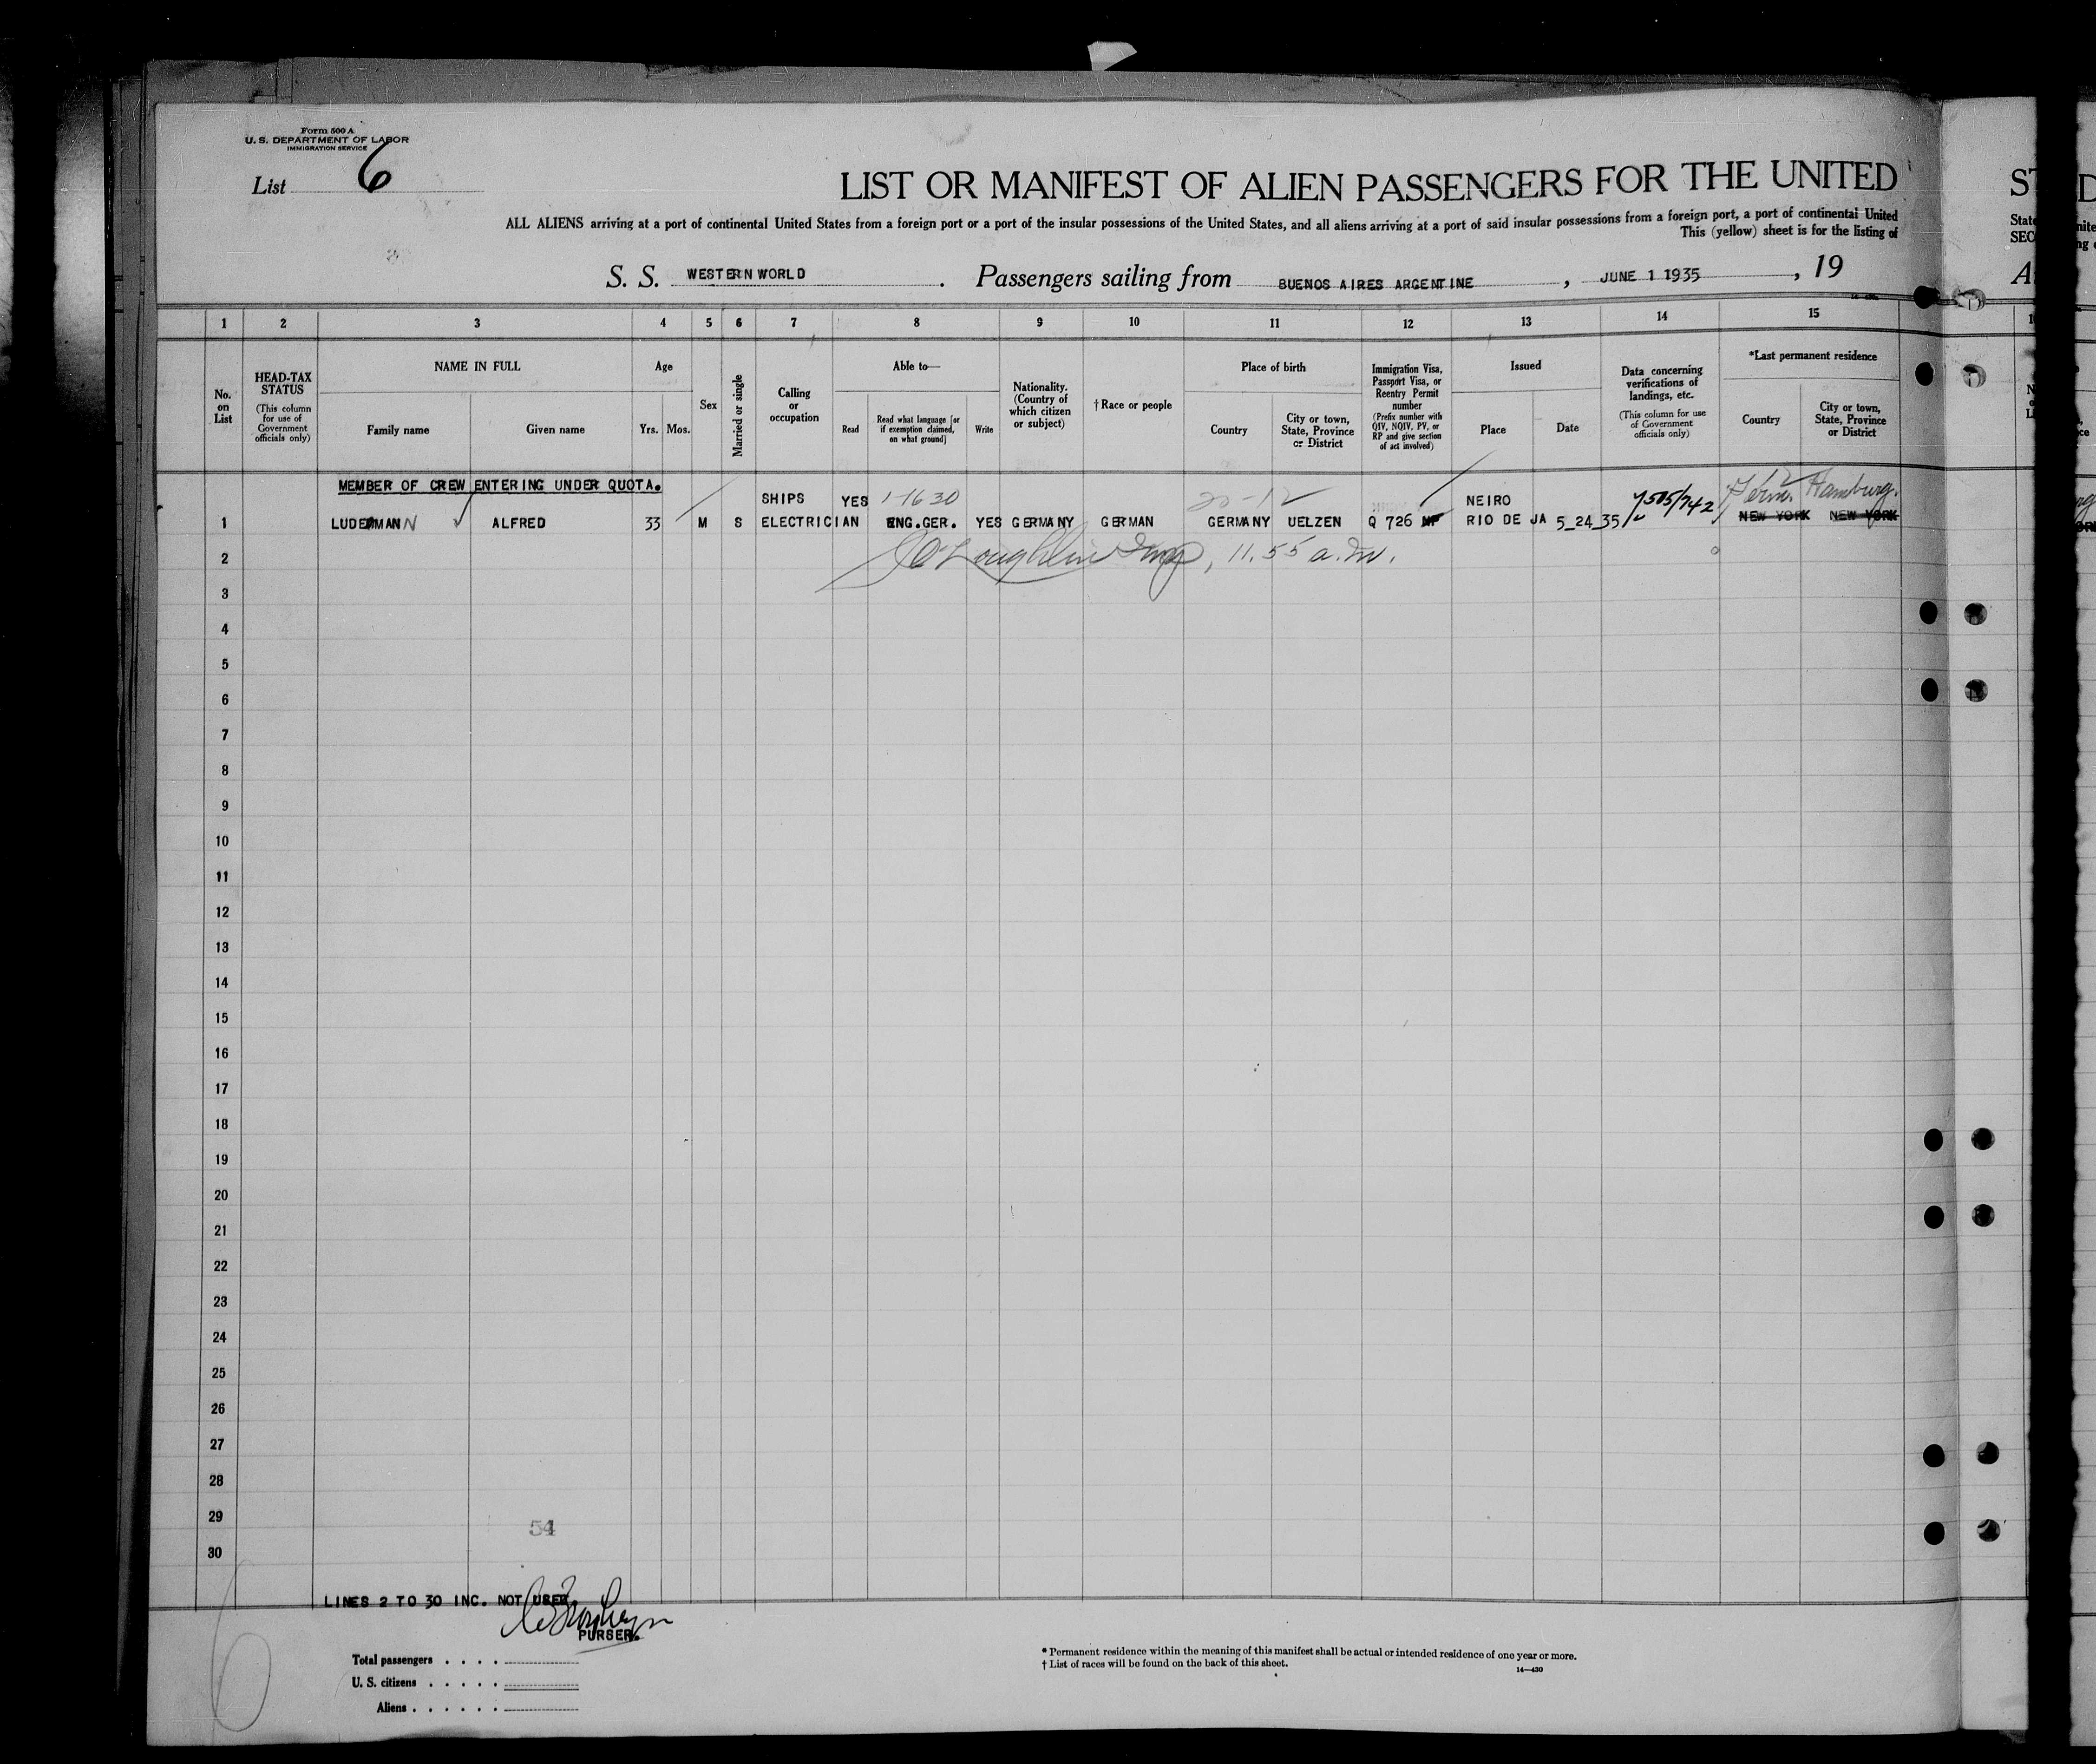 Form 500 A
U. S. DEPARTMENT OF LABOR
IMMIGRATION SERVICE
List 6
LIST OR MANIFEST OF ALIEN PASSENGERS FOR THE UNITED
ALL ALIENS arriving at a port of continental United States from a foreign port or a port of the insular possessions of the United States, and all aliens arriving at a port of said insular possessions from a foreign port, a port of continental United
This (yellow) sheet is for the listing of
S. S. WESTERN WORLD . Passengers sailing from BUENOS AIRES ARGENTINE , JUNE 1 1935 , 19
1 2 3 4 5 6 7 8 9 10 11 12 13 14 15
No. on List
HEAD-TAX STATUS
(This column for use of Government officials only)
NAME IN FULL
Family name
Given name
Age
Yrs. Mos.
Sex
Married or single
Calling or occupation
Able to—
Read
Read what language [or if exemption claimed, on what ground]
Write
Nationality. (Country of which citizen or subject)
† Race or people
Place of birth
Country
City or town, State, Province or District
Immigration Visa, Passport Visa, or Reentry Permit number
(Prefix number with QIV, NQIV, PV, or RP and give section of act involved)
Issued
Place
Date
Data concerning verifications of landings, etc.
(This column for use of Government officials only)
*Last permanent residence
Country
City or town, State, Province or District
MEMBER OF CREW ENTERING UNDER QUOTA.
SHIPS YES 1-1630 NEIRO Hamburg.
1 LUDEMANN ALFRED 33 M S ELECTRICIAN ENG.GER. YES GERMANY GERMAN GERMANY UELZEN Q 726 RIO DE JA 5_24_35 NEW YORK NEW YORK
2 11.55 a.m.
3
4
5
6
7
8
9
10
11
12
13
14
15
16
17
18
19
20
21
22
23
24
25
26
27
28
29
54
30
LINES 2 TO 30 INC. NOT USED.
PURSER.
Total passengers
U. S. citizens
Aliens
* Permanent residence within the meaning of this manifest shall be actual or intended residence of one year or more.
† List of races will be found on the back of this sheet.
14—430